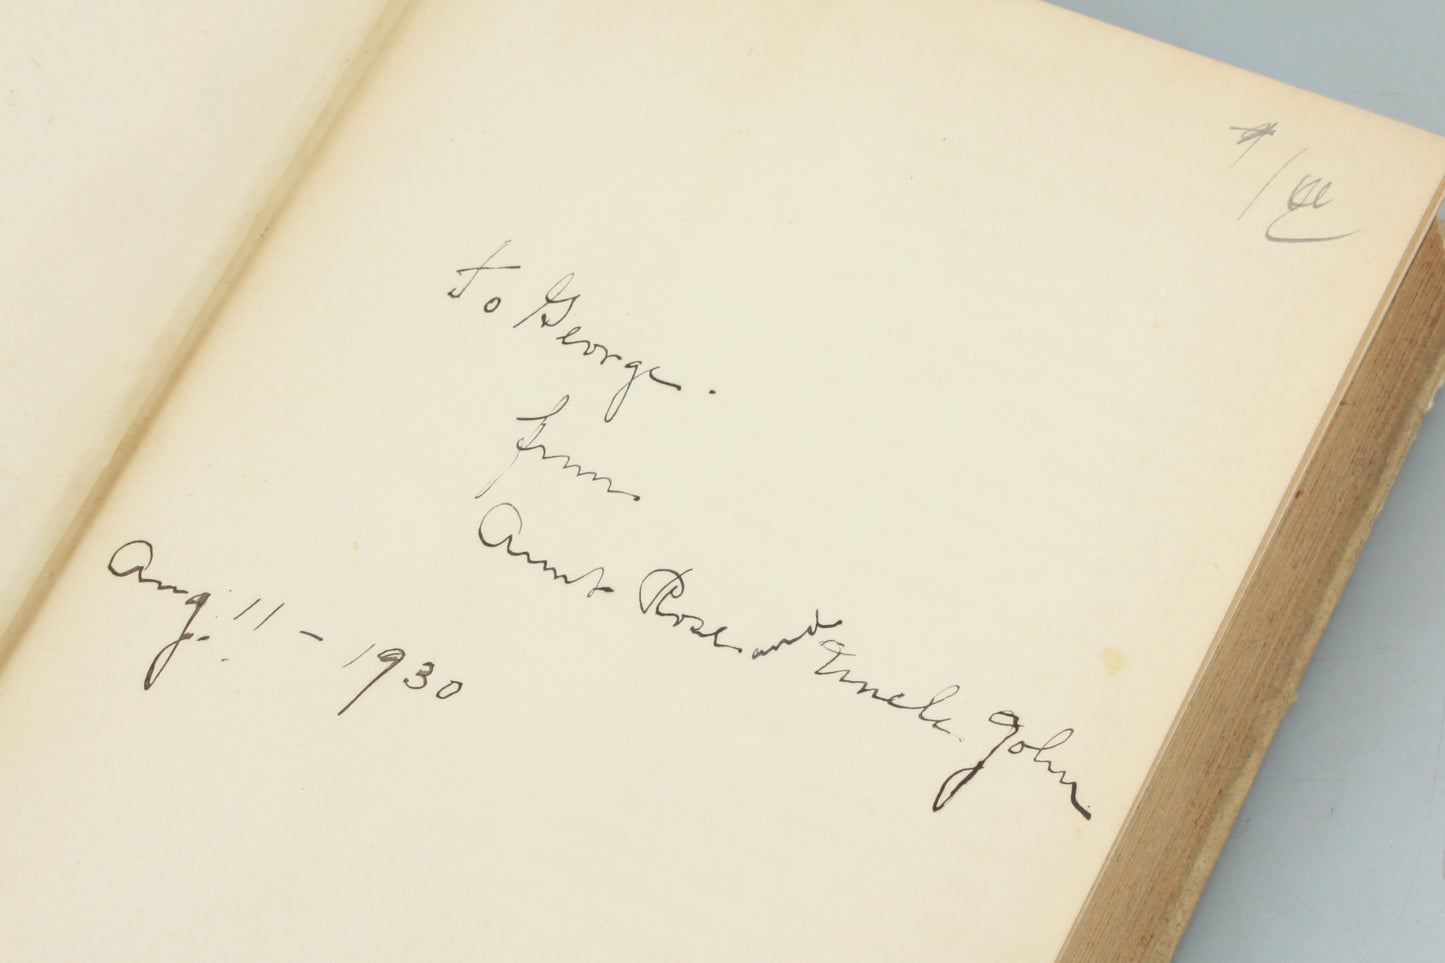 to George.
from
Aunt Rose and Uncle John
Aug. 11 - 1930